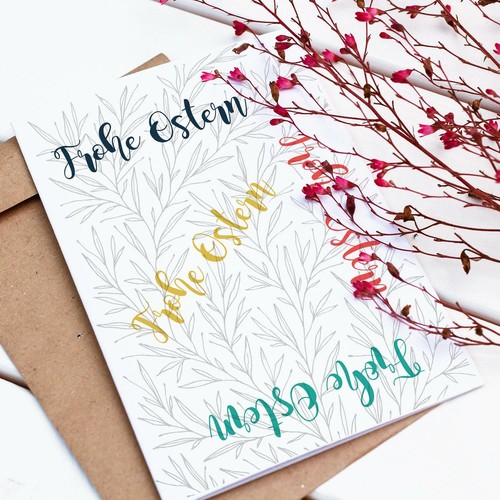 Frohe Ostern
Frohe Ostern
Frohe Ostern
Frohe Ostern